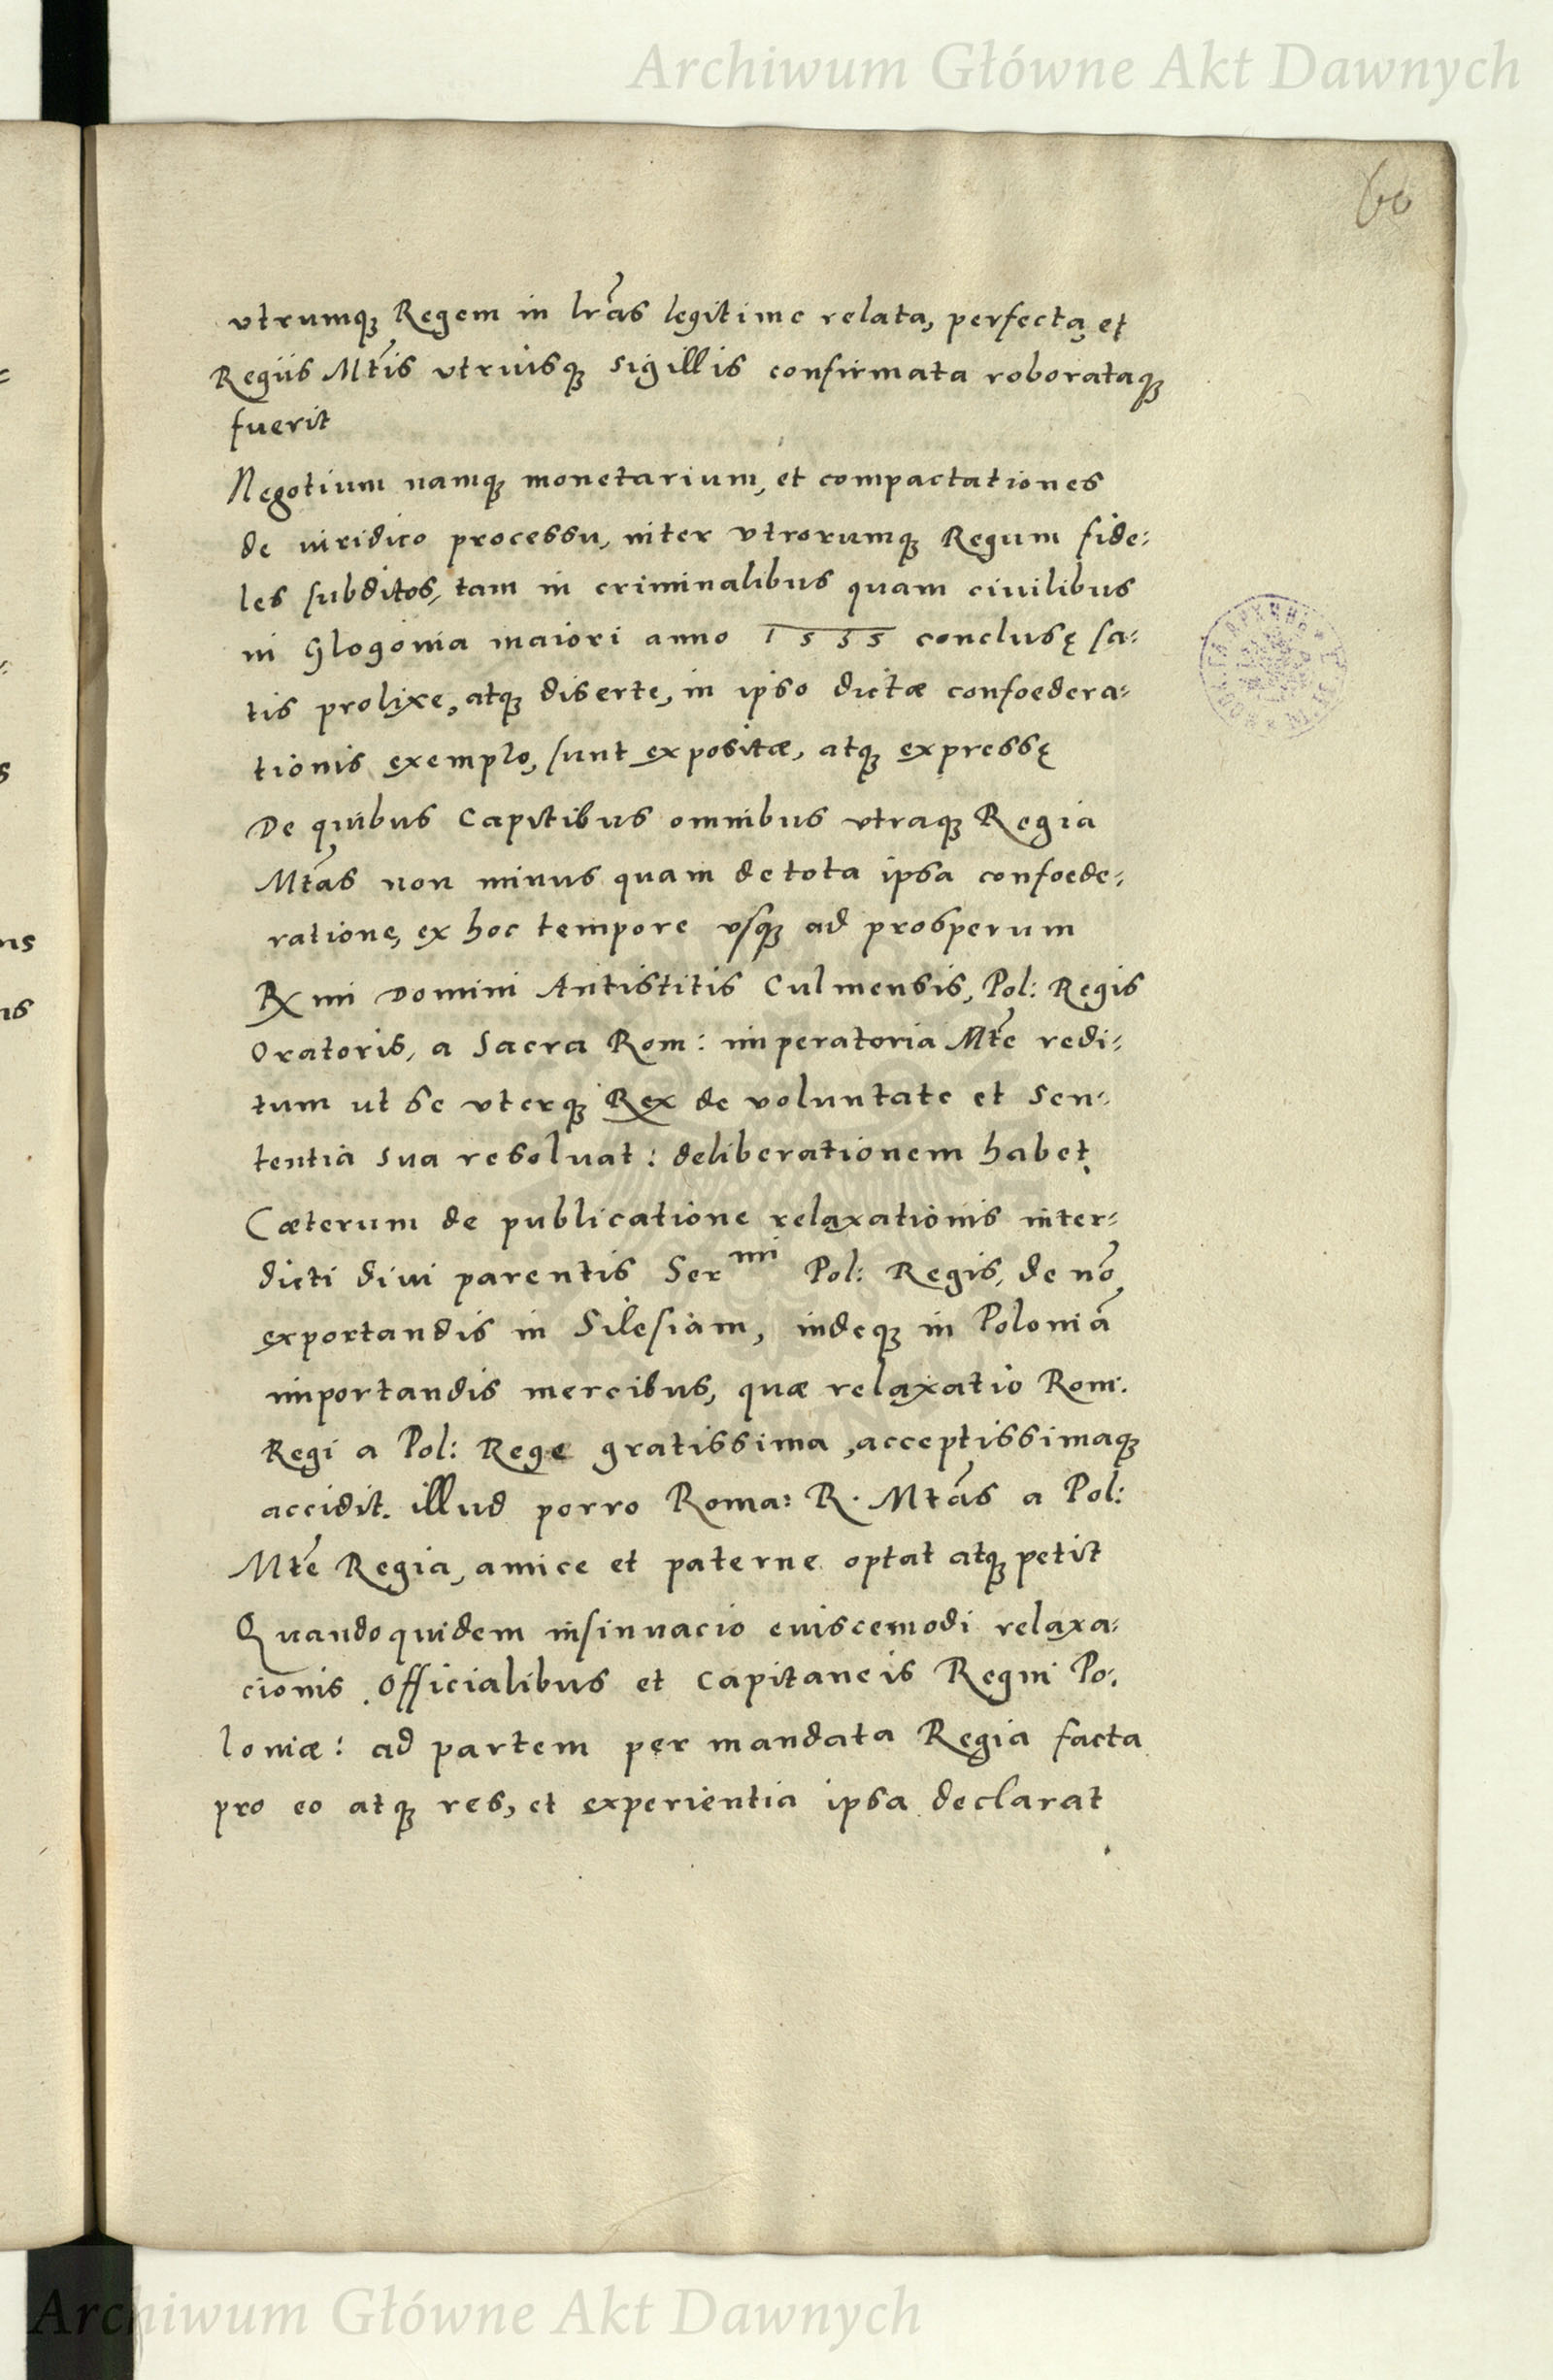 Archiwum Główne Akt Dawnych
60
vtrumq3 Regem in lrãs legitime relata, perfecta, et
Regiis Mtĩs vtriusq3 sigillis confirmata roborataq3
fuerit
Negotium namq3 monetarium, et compactationes
de iuridico processu, inter vtrorumq3 Regum fide:
les subditos, tam in criminalibus quam ciuilibus
in Glogouia maiori anno 1535 conclusę sa:
tis prolixe, atq3 diserte, in ipso dictæ confoedera:
tionis exemplo, sunt expositæ, atq3 expressę
De quibus Capitibus omnibus vtraq3 Regia
Mtãs non minus quam de tota ipsa confoede:
ratione, ex hoc tempore vsq3 ad prosperum
Rxmi Domini Antistitis Culmensis, Pol: Regis
Oratoris, a Sacra Rom: imperatoria Mtẽ redi:
tum ut se vterq3 Rex de voluntate et sen:
tentia sua resoluat: deliberationem habet.
Cæterum de publicatione relaxationis inter:
dicti diui parentis Ser^mi Pol: Regis, de nõ
exportandis in Silesiam, indeq3 in Poloniã
importandis mercibus, quæ relaxatio Rom.
Regi a Pol: Rege gratissima, acceptissimaq3
accidit. illud porro Roma: R. Mtãs a Pol:
Mtẽ Regia, amice et paterne optat atq3 petit
Quandoquidem insinuacio euiscemodi relaxa:
cionis Officialibus et Capitaneis Regni Po:
loniæ: ad partem per mandata Regia facta
pro eo atq3 res, et experientia ipsa declarat
Archiwum Główne Akt Dawnych